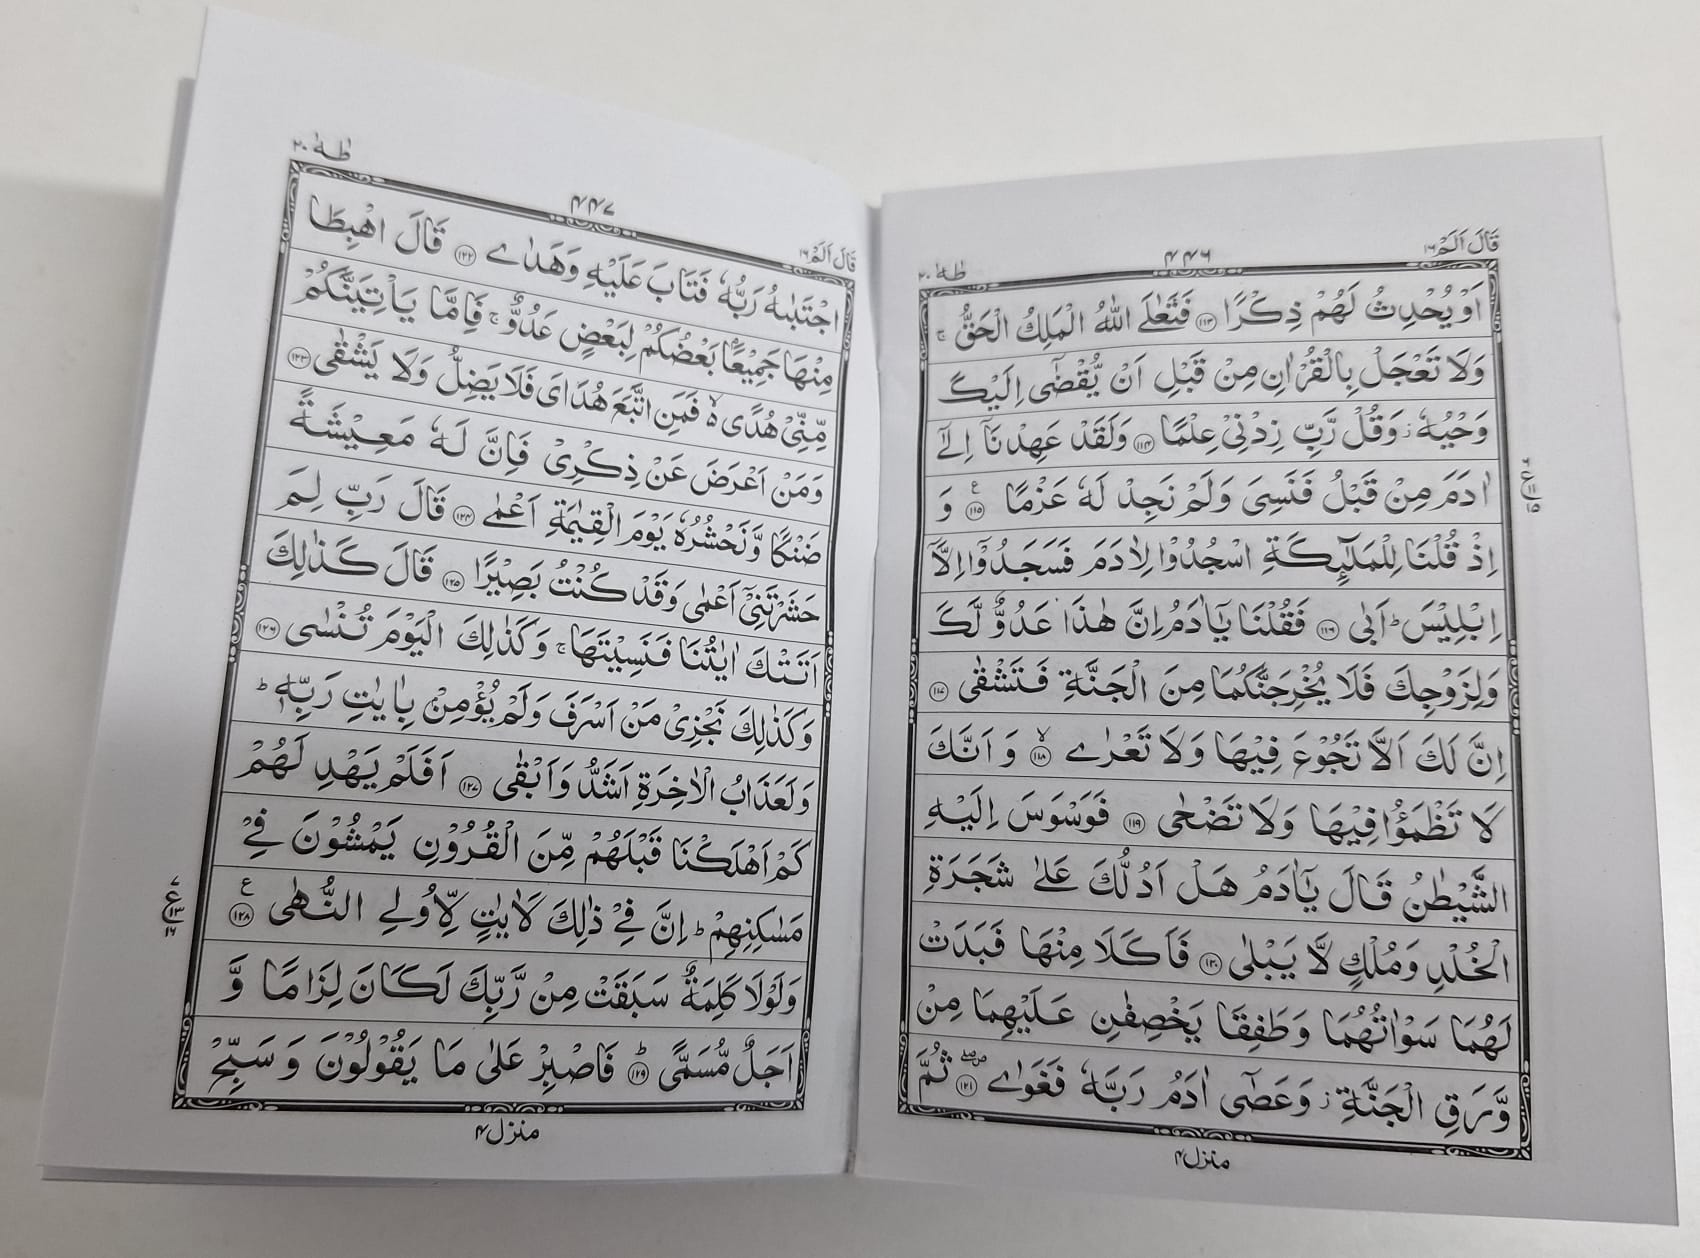 قَالَ اَلَمْ ١٦
٤٤٦
طٰهٰ ٢٠
اَوْ يُحْدِثُ لَهُمْ ذِكْرًا ﴿١١٣﴾ فَتَعٰلَى اللّٰهُ الْمَلِكُ الْحَقُّ ۚ
وَلَا تَعْجَلْ بِالْقُرْاٰنِ مِنْ قَبْلِ اَنْ يُّقْضٰٓى اِلَيْكَ
وَحْيُهٗ ۫ وَقُلْ رَّبِّ زِدْنِيْ عِلْمًا ﴿١١٤﴾ وَلَقَدْ عَهِدْنَآ اِلٰٓى
اٰدَمَ مِنْ قَبْلُ فَنَسِيَ وَلَمْ نَجِدْ لَهٗ عَزْمًا ﴿١١٥﴾ ع وَ
اِذْ قُلْنَا لِلْمَلٰٓئِكَةِ اسْجُدُوْا لِاٰدَمَ فَسَجَدُوْٓا اِلَّآ
اِبْلِيْسَ ؕ اَبٰى ﴿١١٦﴾ فَقُلْنَا يٰٓاٰدَمُ اِنَّ هٰذَا عَدُوٌّ لَّكَ
وَلِزَوْجِكَ فَلَا يُخْرِجَنَّكُمَا مِنَ الْجَنَّةِ فَتَشْقٰى ﴿١١٧﴾
اِنَّ لَكَ اَلَّا تَجُوْعَ فِيْهَا وَلَا تَعْرٰى ﴿١١٨﴾ ۙ وَ اَنَّكَ
لَا تَظْمَؤُا فِيْهَا وَلَا تَضْحٰى ﴿١١٩﴾ فَوَسْوَسَ اِلَيْهِ
الشَّيْطٰنُ قَالَ يٰٓاٰدَمُ هَلْ اَدُلُّكَ عَلٰى شَجَرَةِ
الْخُلْدِ وَمُلْكٍ لَّا يَبْلٰى ﴿١٢٠﴾ فَاَكَلَا مِنْهَا فَبَدَتْ
لَهُمَا سَوْاٰتُهُمَا وَطَفِقَا يَخْصِفٰنِ عَلَيْهِمَا مِنْ
وَّرَقِ الْجَنَّةِ ۫ وَعَصٰٓى اٰدَمُ رَبَّهٗ فَغَوٰى ﴿١٢١﴾ ۖ ثُمَّ
منزل ٤
قَالَ اَلَمْ ١٦
٤٤٧
طٰهٰ ٢٠
اجْتَبٰىهُ رَبُّهٗ فَتَابَ عَلَيْهِ وَهَدٰى ﴿١٢٢﴾ قَالَ اهْبِطَا
مِنْهَا جَمِيْعًۢا بَعْضُكُمْ لِبَعْضٍ عَدُوٌّ ۚ فَاِمَّا يَاْتِيَنَّكُمْ
مِّنِّيْ هُدًى ۙ فَمَنِ اتَّبَعَ هُدَايَ فَلَا يَضِلُّ وَلَا يَشْقٰى ﴿١٢٣﴾
وَمَنْ اَعْرَضَ عَنْ ذِكْرِيْ فَاِنَّ لَهٗ مَعِيْشَةً
ضَنْكًا وَّنَحْشُرُهٗ يَوْمَ الْقِيٰمَةِ اَعْمٰى ﴿١٢٤﴾ قَالَ رَبِّ لِمَ
حَشَرْتَنِيْٓ اَعْمٰى وَقَدْ كُنْتُ بَصِيْرًا ﴿١٢٥﴾ قَالَ كَذٰلِكَ
اَتَتْكَ اٰيٰتُنَا فَنَسِيْتَهَا ۚ وَكَذٰلِكَ الْيَوْمَ تُنْسٰى ﴿١٢٦﴾
وَكَذٰلِكَ نَجْزِيْ مَنْ اَسْرَفَ وَلَمْ يُؤْمِنْۢ بِاٰيٰتِ رَبِّهٖ ؕ
وَلَعَذَابُ الْاٰخِرَةِ اَشَدُّ وَاَبْقٰى ﴿١٢٧﴾ اَفَلَمْ يَهْدِ لَهُمْ
كَمْ اَهْلَكْنَا قَبْلَهُمْ مِّنَ الْقُرُوْنِ يَمْشُوْنَ فِيْ
مَسٰكِنِهِمْ ؕ اِنَّ فِيْ ذٰلِكَ لَاٰيٰتٍ لِّاُولِي النُّهٰى ﴿١٢٨﴾ ع
وَلَوْلَا كَلِمَةٌ سَبَقَتْ مِنْ رَّبِّكَ لَكَانَ لِزَامًا وَّ
اَجَلٌ مُّسَمًّى ﴿١٢٩﴾ ؕ فَاصْبِرْ عَلٰى مَا يَقُوْلُوْنَ وَ سَبِّحْ
منزل ٤